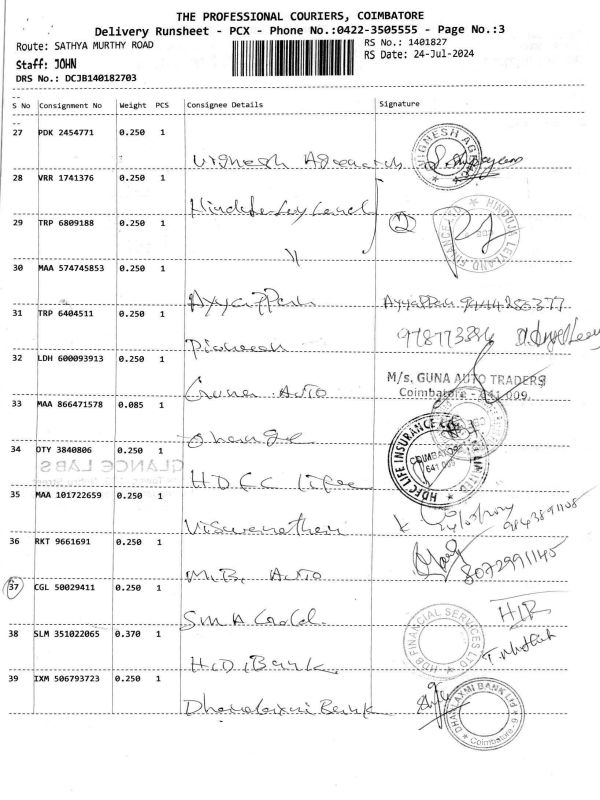 THE PROFESSIONAL COURIERS, COIMBATORE
Delivery Runsheet - PCX - Phone No.:0422-3505555 - Page No.:3
Route: SATHYA MURTHY ROAD
RS No.: 1401827
RS Date: 24-Jul-2024
Staff: JOHN
DRS No.: DCJB140182703
S No Consignment No Weight PCS Consignee Details Signature
27 PDK 2454771 0.250 1
Vignesh Agencies
VIGNESH AGE
28 VRR 1741376 0.250 1
Hinduja Leyland
29 TRP 6809188 0.250 1
②
HINDUJA LEYLAND FINANCE LTD
〃
30 MAA 574745853 0.250 1
Ayyappan Ayyappan 9944255377
31 TRP 6404511 0.250 1
978773386
32 LDH 600093913 0.250 1
Guna Auto
M/s. GUNA AUTO TRADERS
Coimbatore - 641 009.
33 MAA 866471578 0.085 1
34 OTY 3840806 0.250 1
HDFC Life
HDFC LIFE INSURANCE CO. LIMITED
COIMBATORE
641 009
GLANCE LABS
35 MAA 101722659 0.250 1
Viswanathan
9843891108
36 RKT 9661691 0.250 1
M.B. Auto
8072991145
37 CGL 50029411 0.250 1
SMA Gold
38 SLM 351022065 0.370 1
HDB FINANCIAL SERVICES LTD
H.D.Bank
39 IXM 506793723 0.250 1
Dhanalaxmi Bank
DHANLAXMI BANK Ltd
Coimbatore - 9